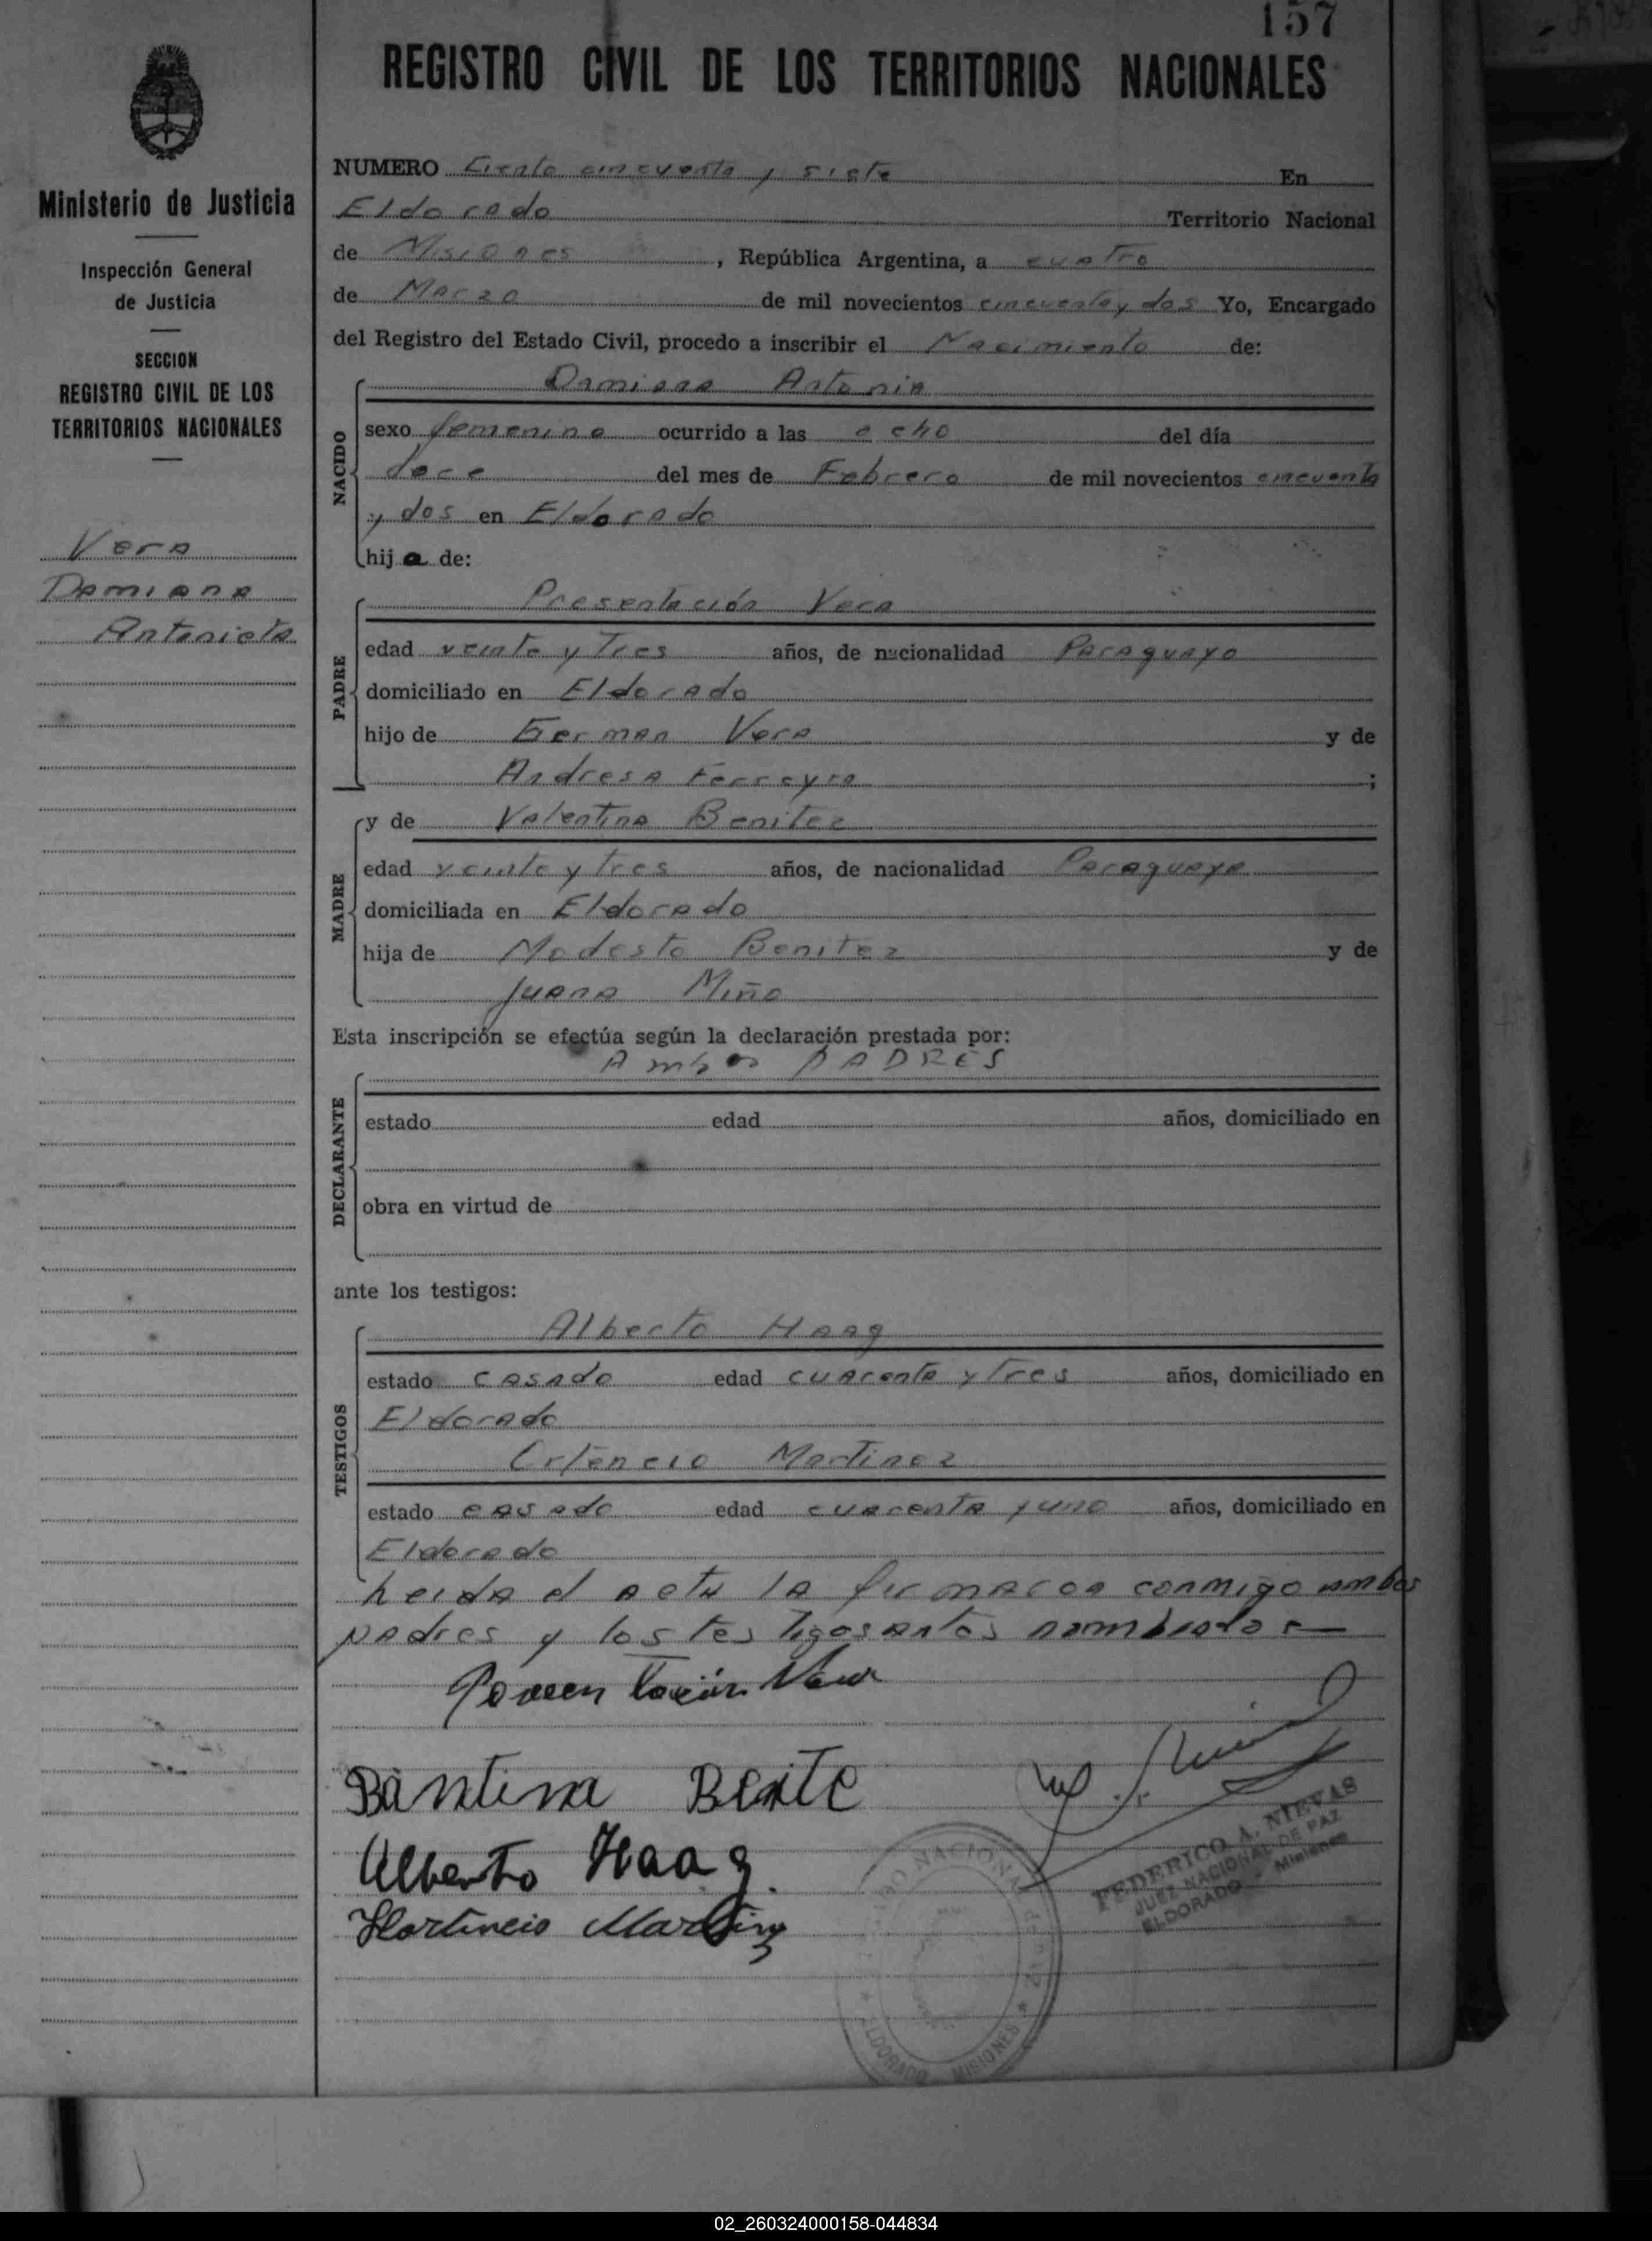 157
REGISTRO CIVIL DE LOS TERRITORIOS NACIONALES
Ministerio de Justicia
Inspección General
de Justicia
SECCION
REGISTRO CIVIL DE LOS
TERRITORIOS NACIONALES
Vera
Damiana
Antonieta
NUMERO Ciento cincuenta y siete En
Eldorado Territorio Nacional
de Misiones, República Argentina, a cuatro
de Marzo de mil novecientos cincuenta y dos Yo, Encargado
del Registro del Estado Civil, procedo a inscribir el Nacimiento de:
NACIDO
Damiana Antonia
sexo femenino ocurrido a las ocho del día
doce del mes de Febrero de mil novecientos cincuenta
y dos en Eldorado
hija de:
PADRE
Presentación Vera
edad veinte y tres años, de nacionalidad Paraguayo
domiciliado en Eldorado
hijo de German Vera y de
Andresa Ferreyra;
MADRE
y de Valentina Benitez
edad veinte y tres años, de nacionalidad Paraguaya
domiciliada en Eldorado
hija de Modesto Benitez y de
Juana Miño
Esta inscripción se efectúa según la declaración prestada por:
DECLARANTE
Ambos PADRES
estado edad años, domiciliado en
obra en virtud de
ante los testigos:
TESTIGOS
Alberto Haag
estado casado edad cuarenta y tres años, domiciliado en
Eldorado
Ortencio Martinez
estado casado edad cuarenta y uno años, domiciliado en
Eldorado
Leida el acta la firmaron conmigo ambos
padres y los testigos antes nombrados
Vera
Bantina Benite
Alberto Haag
Hortincio Martinz
FEDERICO A. NIEVAS
JUEZ NACIONAL DE PAZ
ELDORADO - Misiones
NACIONAL DE PAZ
ELDORADO MISIONES
02_260324000158-044834